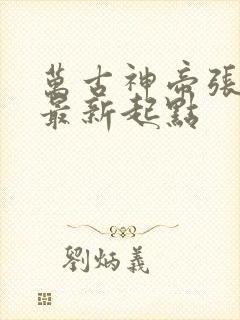 萬古神帝張
最新起點
劉炳義